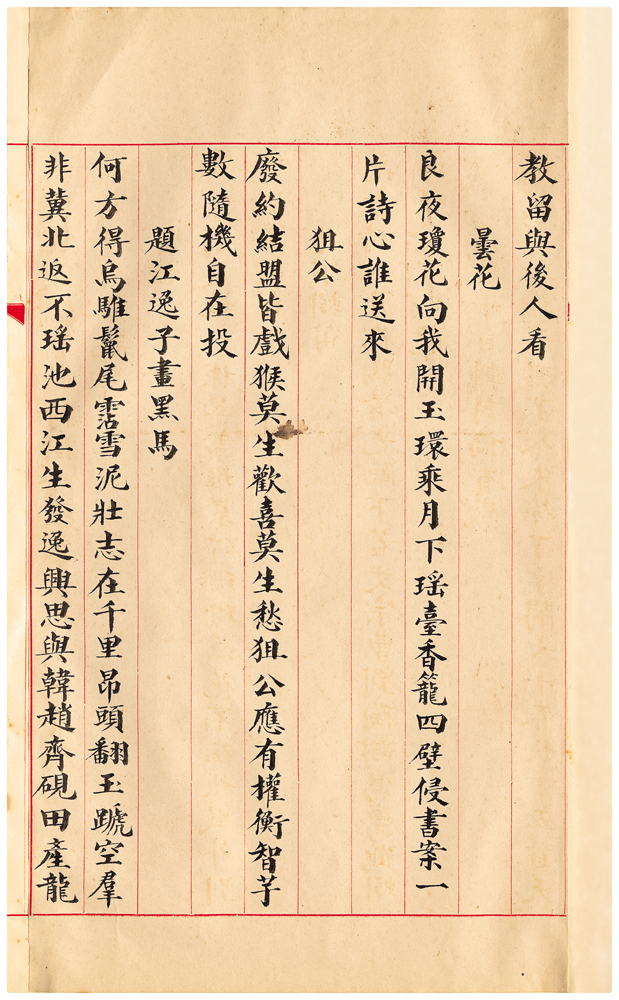 教留與後人看
曇花
良夜瓊花向我開玉環乘月下瑶臺香籠四壁侵書案一
片詩心誰送來
狙公
廢約結盟皆戲猴莫生歡喜莫生愁狙公應有權衡智芋
數隨機自在投
題江逸子畫黑馬
何方得烏騅鬣尾霑雪泥壯志在千里昂頭翻玉蹏空羣
非冀北返不瑶池西江生發逸興思與韓趙齊硯田產龍